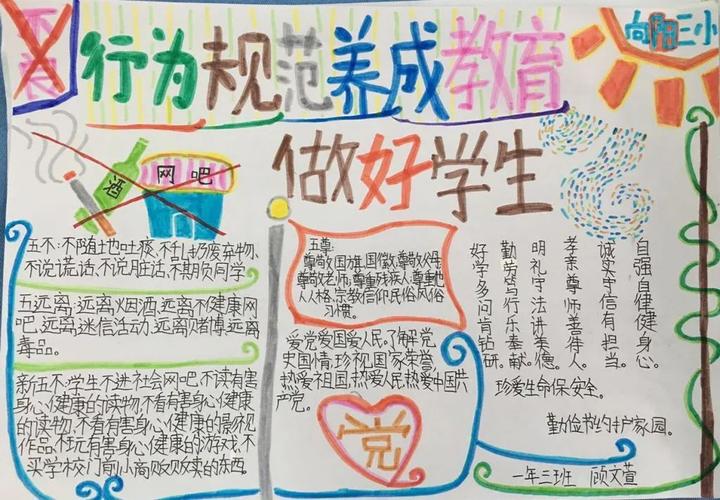 不良
行为规范养成教育
向阳三小
做好学生
酒
网吧
五不:不随地吐痰、不乱扔废弃物、
不说谎话、不说脏话、不期负同学
五远离:远离烟酒、远离不健康网
吧、远离迷信活动、远离赌博、远离
毒品。
新伍不:学生不进社会网吧、不读有害
身心健康的读物、不看有害身心健康
的读物、不看有害身心健康的影视
作品、不玩有害身心健康的游戏、不
买学校门前小商贩贩卖的东西。
五尊:
尊敬国旗、国徽、尊敬父母、
尊敬老师、尊重残疾人、尊重他
人人格、宗教信仰、民俗风俗
习惯。
爱党爱国爱人民、了解党
史国情、珍视国家荣誉、
热爱祖国、热爱人民、热爱中国共
产党。
党
自强自健健身心。
诚实守信有担当。
孝亲尊师善待人。
明礼守法讲美德。
勤劳笃行乐奉献。
好学多问肯钻研。
珍爱生命保安全。
勤俭节约护家园。
一年三班 顾文萱